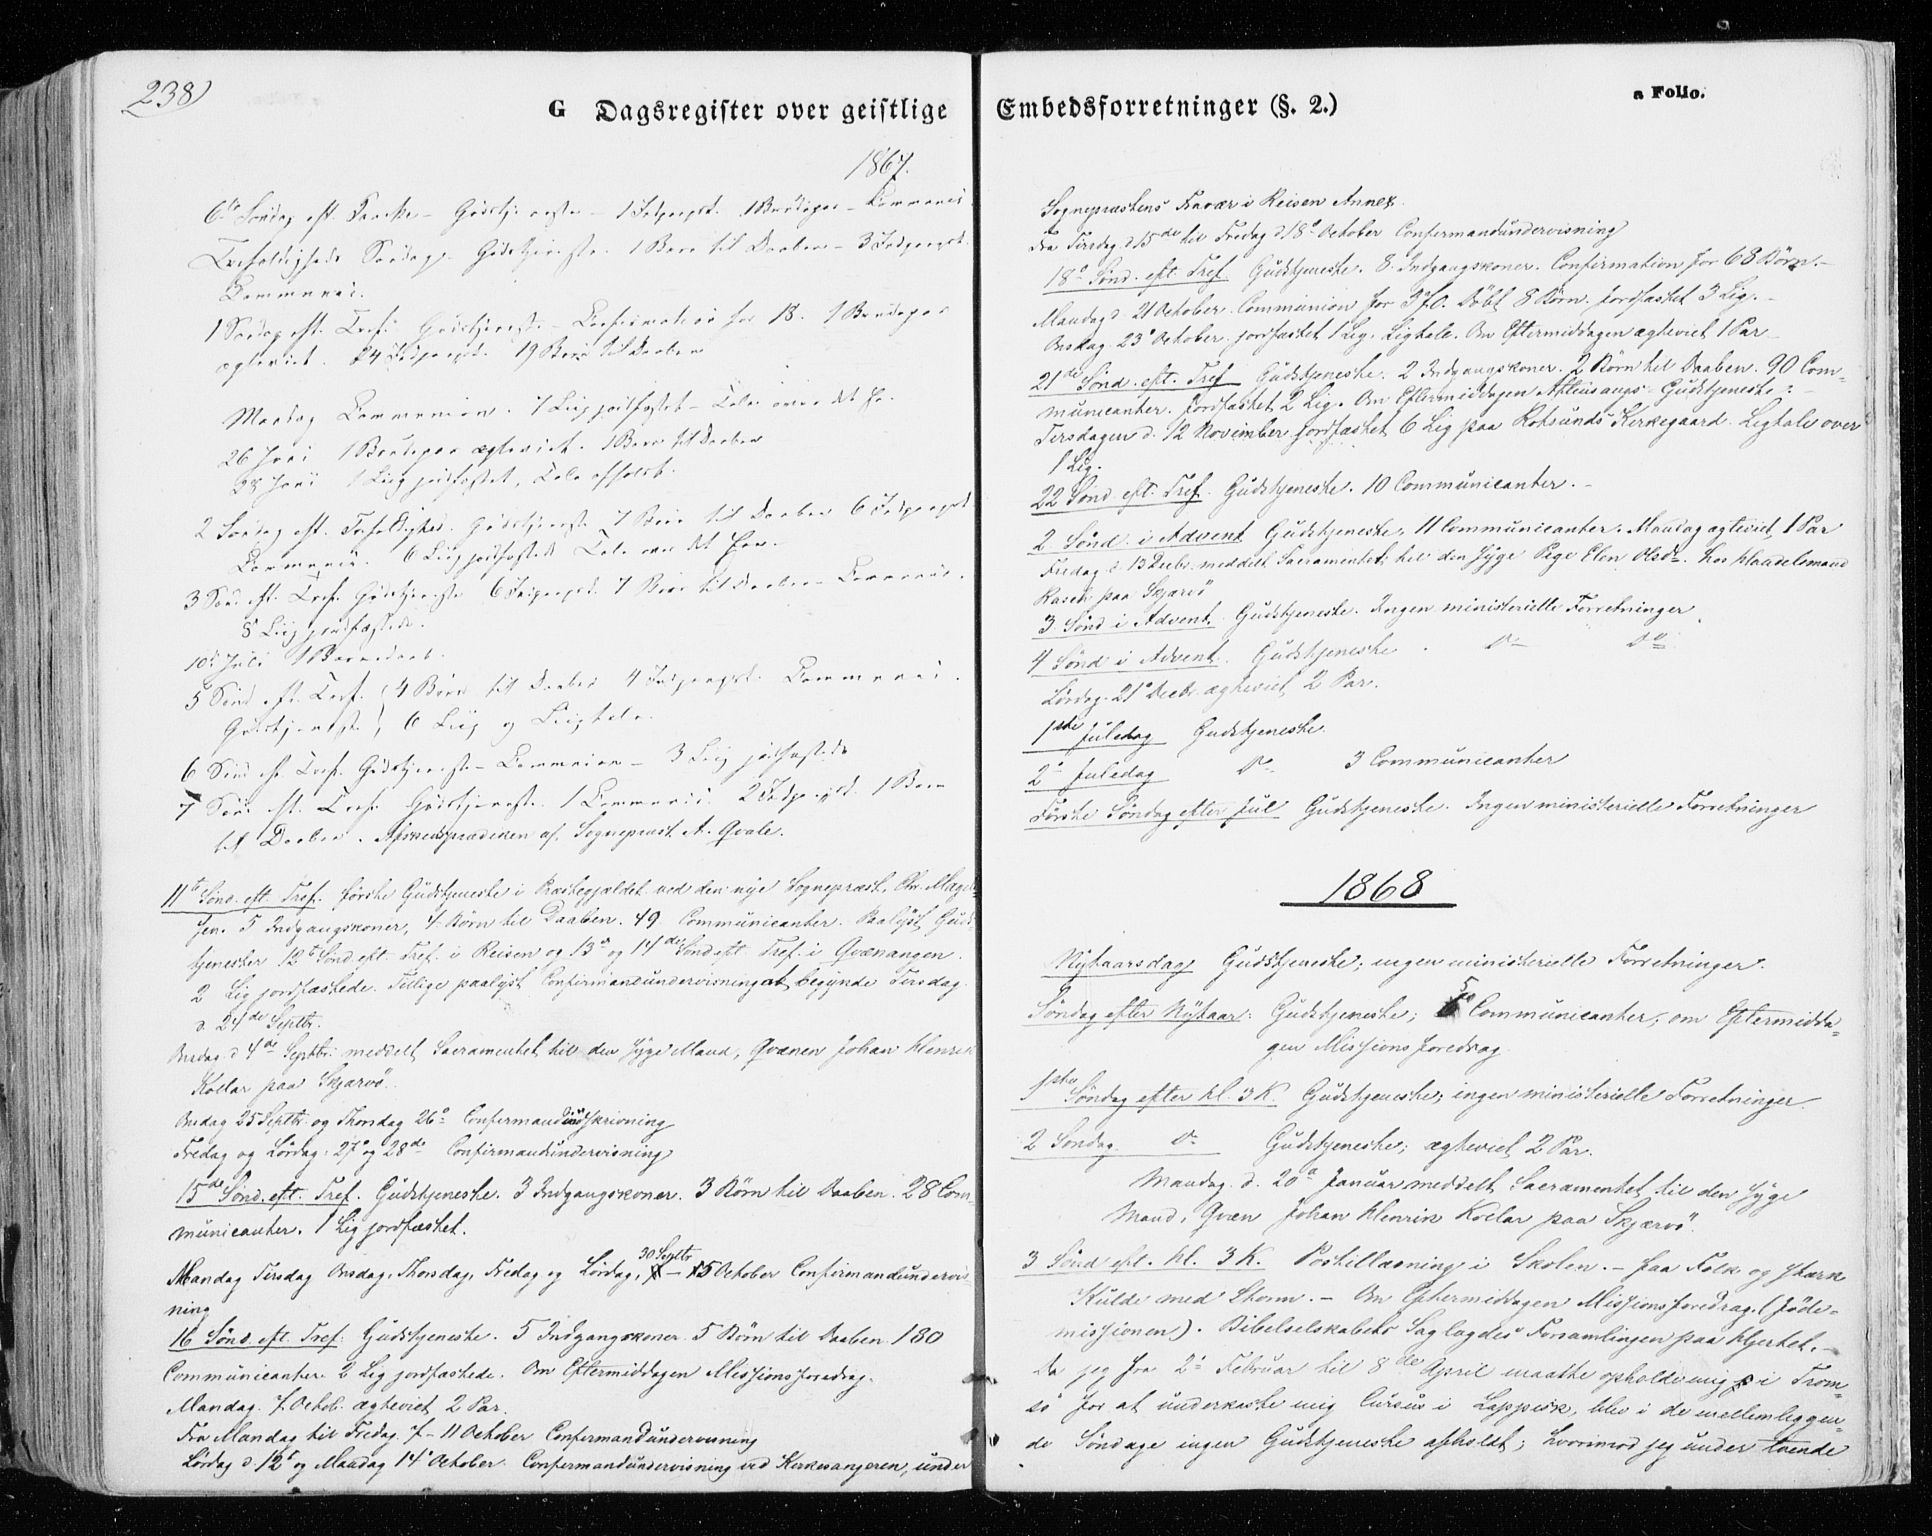 238
G Dagsregister over geistlige
1867.
6te Søndag eft. Paaske – Gudstjeneste – 1 Indgangsk. 1 Brudepar – Communion
Trefoldigheds Søndag. Gudstjeneste. 1 Barn til Daaben – 3 Indgangsk.
Communion.
1 Søndag eft. Tref. Gudstjeneste – Confirmation for 18. 1 Brudepar
ægteviet. 24 Indgangsk. 19 Børn til Daaben
Mandag Communion. 1 Liig jordfæstet – Tale over det
26 Juni 1 Brudepar ægteviet. 1 Barn til Daaben
28 Juni 1 Liig jordfæstet, Tale afholdt.
2 Søndag eft. Trefoldighed. Gudstjeneste 7 Børn til Daaben 6 Indgangsk
Communion. 6 Liig jordfæstede Tale over det
3 Sønd eft. Tref. Gudstjeneste 6 Indgangsk. 7 Børn til Daaben – Communion.
8 Liig jordfæstede.
10de Juli 1 Barnedaab.
5 Sønd eft. Tref. (4 Børn til Daaben 4 Indgangsk. Communion.
Gudstjeneste) 6 Liig og Liigtale.
6 Sønd eft. Tref. Gudstjeneste – Communion – 3 Liig jordfæstede
7 Sønd eft. Tref. Gudstjeneste. 1 Communion. 2 Indgangsk. 1 Barn
til Daaben. Afskedsprædiken af Sognepræst A. Qvale.
11te Sønd. eft. Tref. første Gudstjeneste i Præstegjældet ved den nye Sognepræst, Chr. Magel-
sen. 5 Indgangskoner, 4 Børn til Daaben. 49 Communicanter. Paalyst Guds-
tjenester 12te Sønd. eft. Tref. i Reisen og 13de og 14de Sønd. eft. Tref. i Qvænangen.
2 Lig jordfæstede. Tillige paalyst Confirmandundervisning at begynde Tirsdag
d. 24de Septbr.
Onsdag d 4de Septbr. meddelt Sacramentet til den syge Mand, Qvænen Johan Henrik
Kollar paa Skjærvø.
Onsdag 25 Septbr. og Thorsdag 26de Confirmandindskrivning
Fredag og Lørdag 27de og 28de Confirmandundervisning
15de Sønd. eft. Tref. Gudstjeneste. 3 Indgangskoner. 3 Børn til Daaben. 28 Com-
municanter. 1 Lig jordfæstet.
Mandag Tirsdag Onsdag, Thorsdag, Fredag og Lørdag, 30 Septbr – 5 October Confirmandundervis-
ning
16 Sønd. eft. Tref. Gudstjeneste. 5 Indgangskoner. 5 Børn til Daaben. 180
Communicanter. 2 Lig jordfæstede. Om Eftermiddagen Missionsforedrag.
Mandag 7 Octob. ægteviet 2 Par.
Fra Mandag til Fredag 7–11 October Confirmandundervisning
Lørdag d. 12te og Mandag 14de October. Confirmandundervisning ved Kirkesangeren, under
Embedsforretninger (§. 2.)
a Folio.
Sognepræstens Fravær i Reisen Annex.
Fra Tirsdag d 15de til Fredag d 18de October Confirmandundervisning
18de Sønd. eft Tref. Gudstjeneste. 8 Indgangskoner. Confirmation for 68 Børn. –
Mandag d. 21 October. Communion for 370. Døbt 8 Børn. Jordfæstet 3 Lig. –
Onsdag 23de October. jordfæstet 1 Lig. Ligtale. Om Eftermiddagen ægteviet 1 Par –
21de Sønd. eft. Tref Gudstjeneste. 2 Indgangskoner. 2 Børn til Daaben. 90 Com-
municanter. Jordfæstet 2 Lig. Om Eftermiddagen Aftensangs-Gudstjeneste. –
Tirsdagen d. 12 November jordfæstet 6 Lig paa Rotsunds Kirkegaard. Ligtale over
1 Lig.
22 Sønd. eft. Tref. Gudstjeneste. 10 Communicanter. –
2 Sønd. i Advent Gudstjeneste, 11 Communicanter. Mandag ægteviet 1 Par
Fredag d 13 Decbr. meddelt Sacramentet til den syge Pige Elen Olsdr. hos Handelsmand
Rasch paa Skjærvø
3 Sønd i Advent. Gudstjeneste. Ingen ministerielle Forretninger
4 Sønd i Advent. Gudstjeneste. Do Do
Lørdag 21de Decbr. ægteviet 2 Par.
1ste Juledag Gudstjeneste.
2de Juledag Do 3 Communicanter
Første Søndag efter Jul Gudstjeneste. Ingen ministerielle Forretninger
1868
Nytaarsdag Gudstjeneste; ingen ministerielle Forretninger.
Søndag efter Nytaar: Gudstjeneste; 5 Communicanter, om Eftermidda-
gen Missionsforedrag.
1ste Søndag efter hl. 3 K. Gudstjeneste; ingen ministerielle Forretninger.
2 Søndag Do Gudstjeneste; ægteviet 2 Par.
Mandag d. 20de Januar meddelt Sacramentet til den syge
Mand, Qvæn Johan Henrik Kollar paa Skjærvø.
3 Sønd eft. hl. 3 K. Postillæsning i Skolen. – faa Folk og stærk
Kulde med Storm. – Om Eftermiddagen Missionsforedrag. (Jøde-
missionen). Bibelselskabets Sag lagdes Forsamlingen paa Hjertet. –
Da jeg fra 2de Februar til 8de April maatte opholde mig i Trom-
sø for at underkaste mig Cursus i Lappisk, blev i de mellemliggen-
de Søndage ingen Gudstjeneste afholdt; hvorimod jeg under tvende